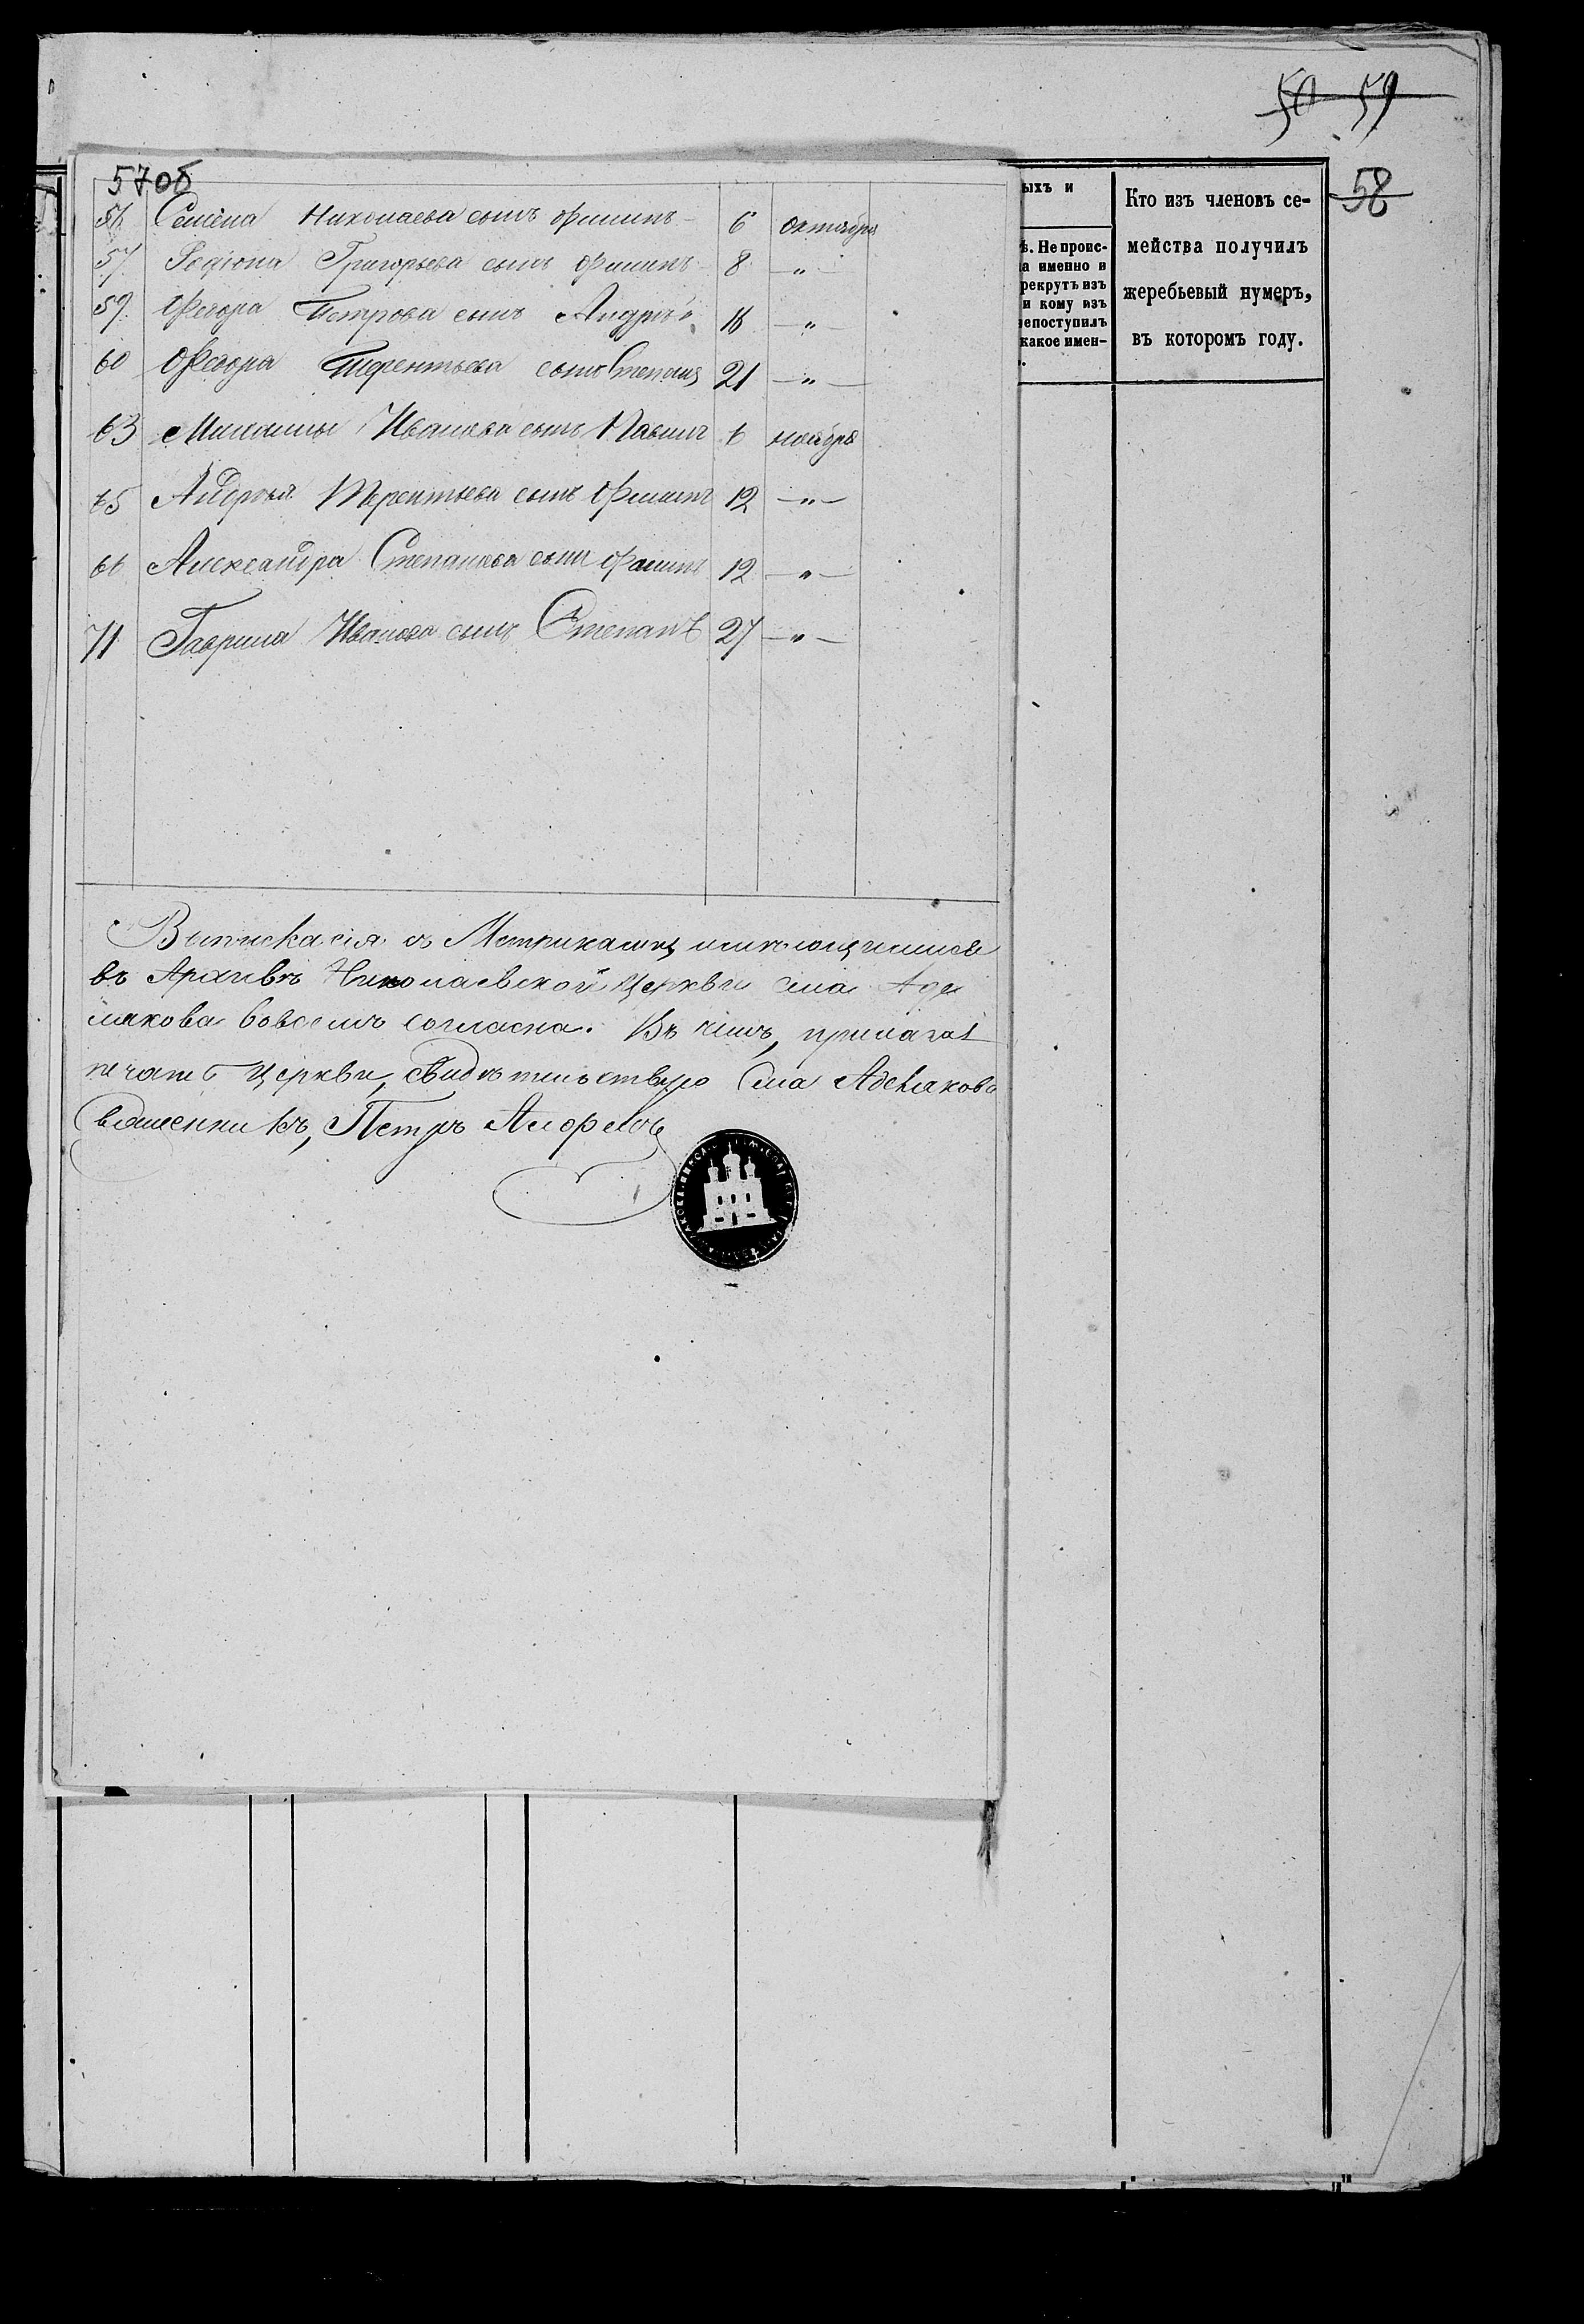 50 59
58
57об
56 Семёна Николаева сынъ Филипъ 6 октября
57 Родіона Григорьева сынъ Филипъ 8 — " —
59 Федора Петрова сынъ Андрѣй 18 — " —
60 Федора Терентьева сынъ Степанъ 21 — " —
63 Ивановa сынъ Павелъ 6 ноября
65 Андрея Терентьева сынъ Филипъ 12 — " —
66 Александра Степанова сынъ Филипъ 12 — " —
71 Гаврила Иванова сынъ Степанъ 27 — " —
Выписка сія съ Метриками имѣющимися
въ Архивѣ Николаевской Церкви села
вовсемъ согласна. Въ чемъ, прилагая
печать Церкви, свидѣтельствую Села
Священникъ, Петръ
ыхъ и
ѣ. Не проис-
а именно и
рекрутъ изъ
и кому изъ
непоступилъ
какое имен-
Кто изъ членовъ се-
мейства получилъ
жеребьевый нумеръ,
въ которомъ году.